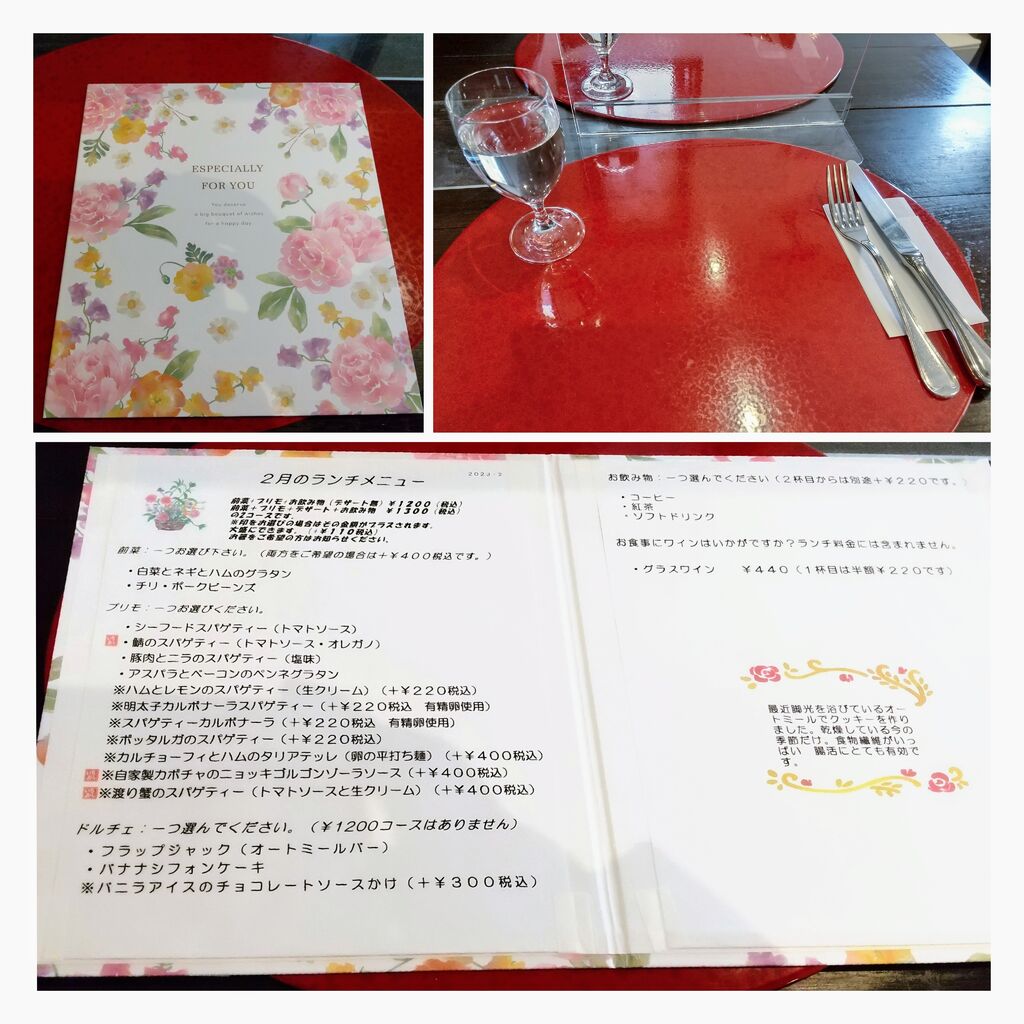 ESPECIALLY
FOR YOU
You deserve
a big bouquet of wishes
for a happy day
2月のランチメニュー
2023-2
前菜+プリモ+お飲み物（デザート無）￥1200（税込）
前菜+プリモ+デザート+お飲み物 ￥1300（税込）
の2コースです。
※印をお選びの場合はその金額がプラスされます。
大盛にできます。（+￥110税込）
お急ぎの方はお知らせください。
前菜：一つお選び下さい。（両方をご希望の場合は+￥400税込です。）
・白菜とネギとハムのグラタン
・チリ・ポークビーンズ
プリモ：一つお選びください。
・シーフードスパゲティー（トマトソース）
・鯖のスパゲティー（トマトソース・オレガノ）
・豚肉とニラのスパゲティー（塩味）
・アスパラとベーコンのペンネグラタン
※ハムとレモンのスパゲティー（生クリーム）（+￥220税込）
※明太子カルボナーラスパゲティー（+￥220税込 有精卵使用）
※スパゲティーカルボナーラ（+￥220税込 有精卵使用）
※ボッタルガのスパゲティー（+￥220税込）
※カルチョーフィとハムのタリアテッレ（卵の平打ち麺）（+￥400税込）
※自家製カボチャのニョッキゴルゴンゾーラソース（+￥400税込）
※渡り蟹のスパゲティー（トマトソースと生クリーム）（+￥400税込）
ドルチェ：一つ選んでください。（￥1200コースはありません）
・フラップジャック（オートミールバー）
・バナナシフォンケーキ
※バニラアイスのチョコレートソースかけ（+￥300税込）
お飲み物：一つ選んでください（2杯目からは別途+￥220です。）
・コーヒー
・紅茶
・ソフトドリンク
お食事にワインはいかがですか？ランチ料金には含まれません。
・グラスワイン ￥440（1杯目は半額￥220です）
最近脚光を浴びているオー
トミールでクッキーを作り
ました。乾燥している今の
季節だけ。食物繊維がいっ
ぱい 腸活にとても有効で
す。